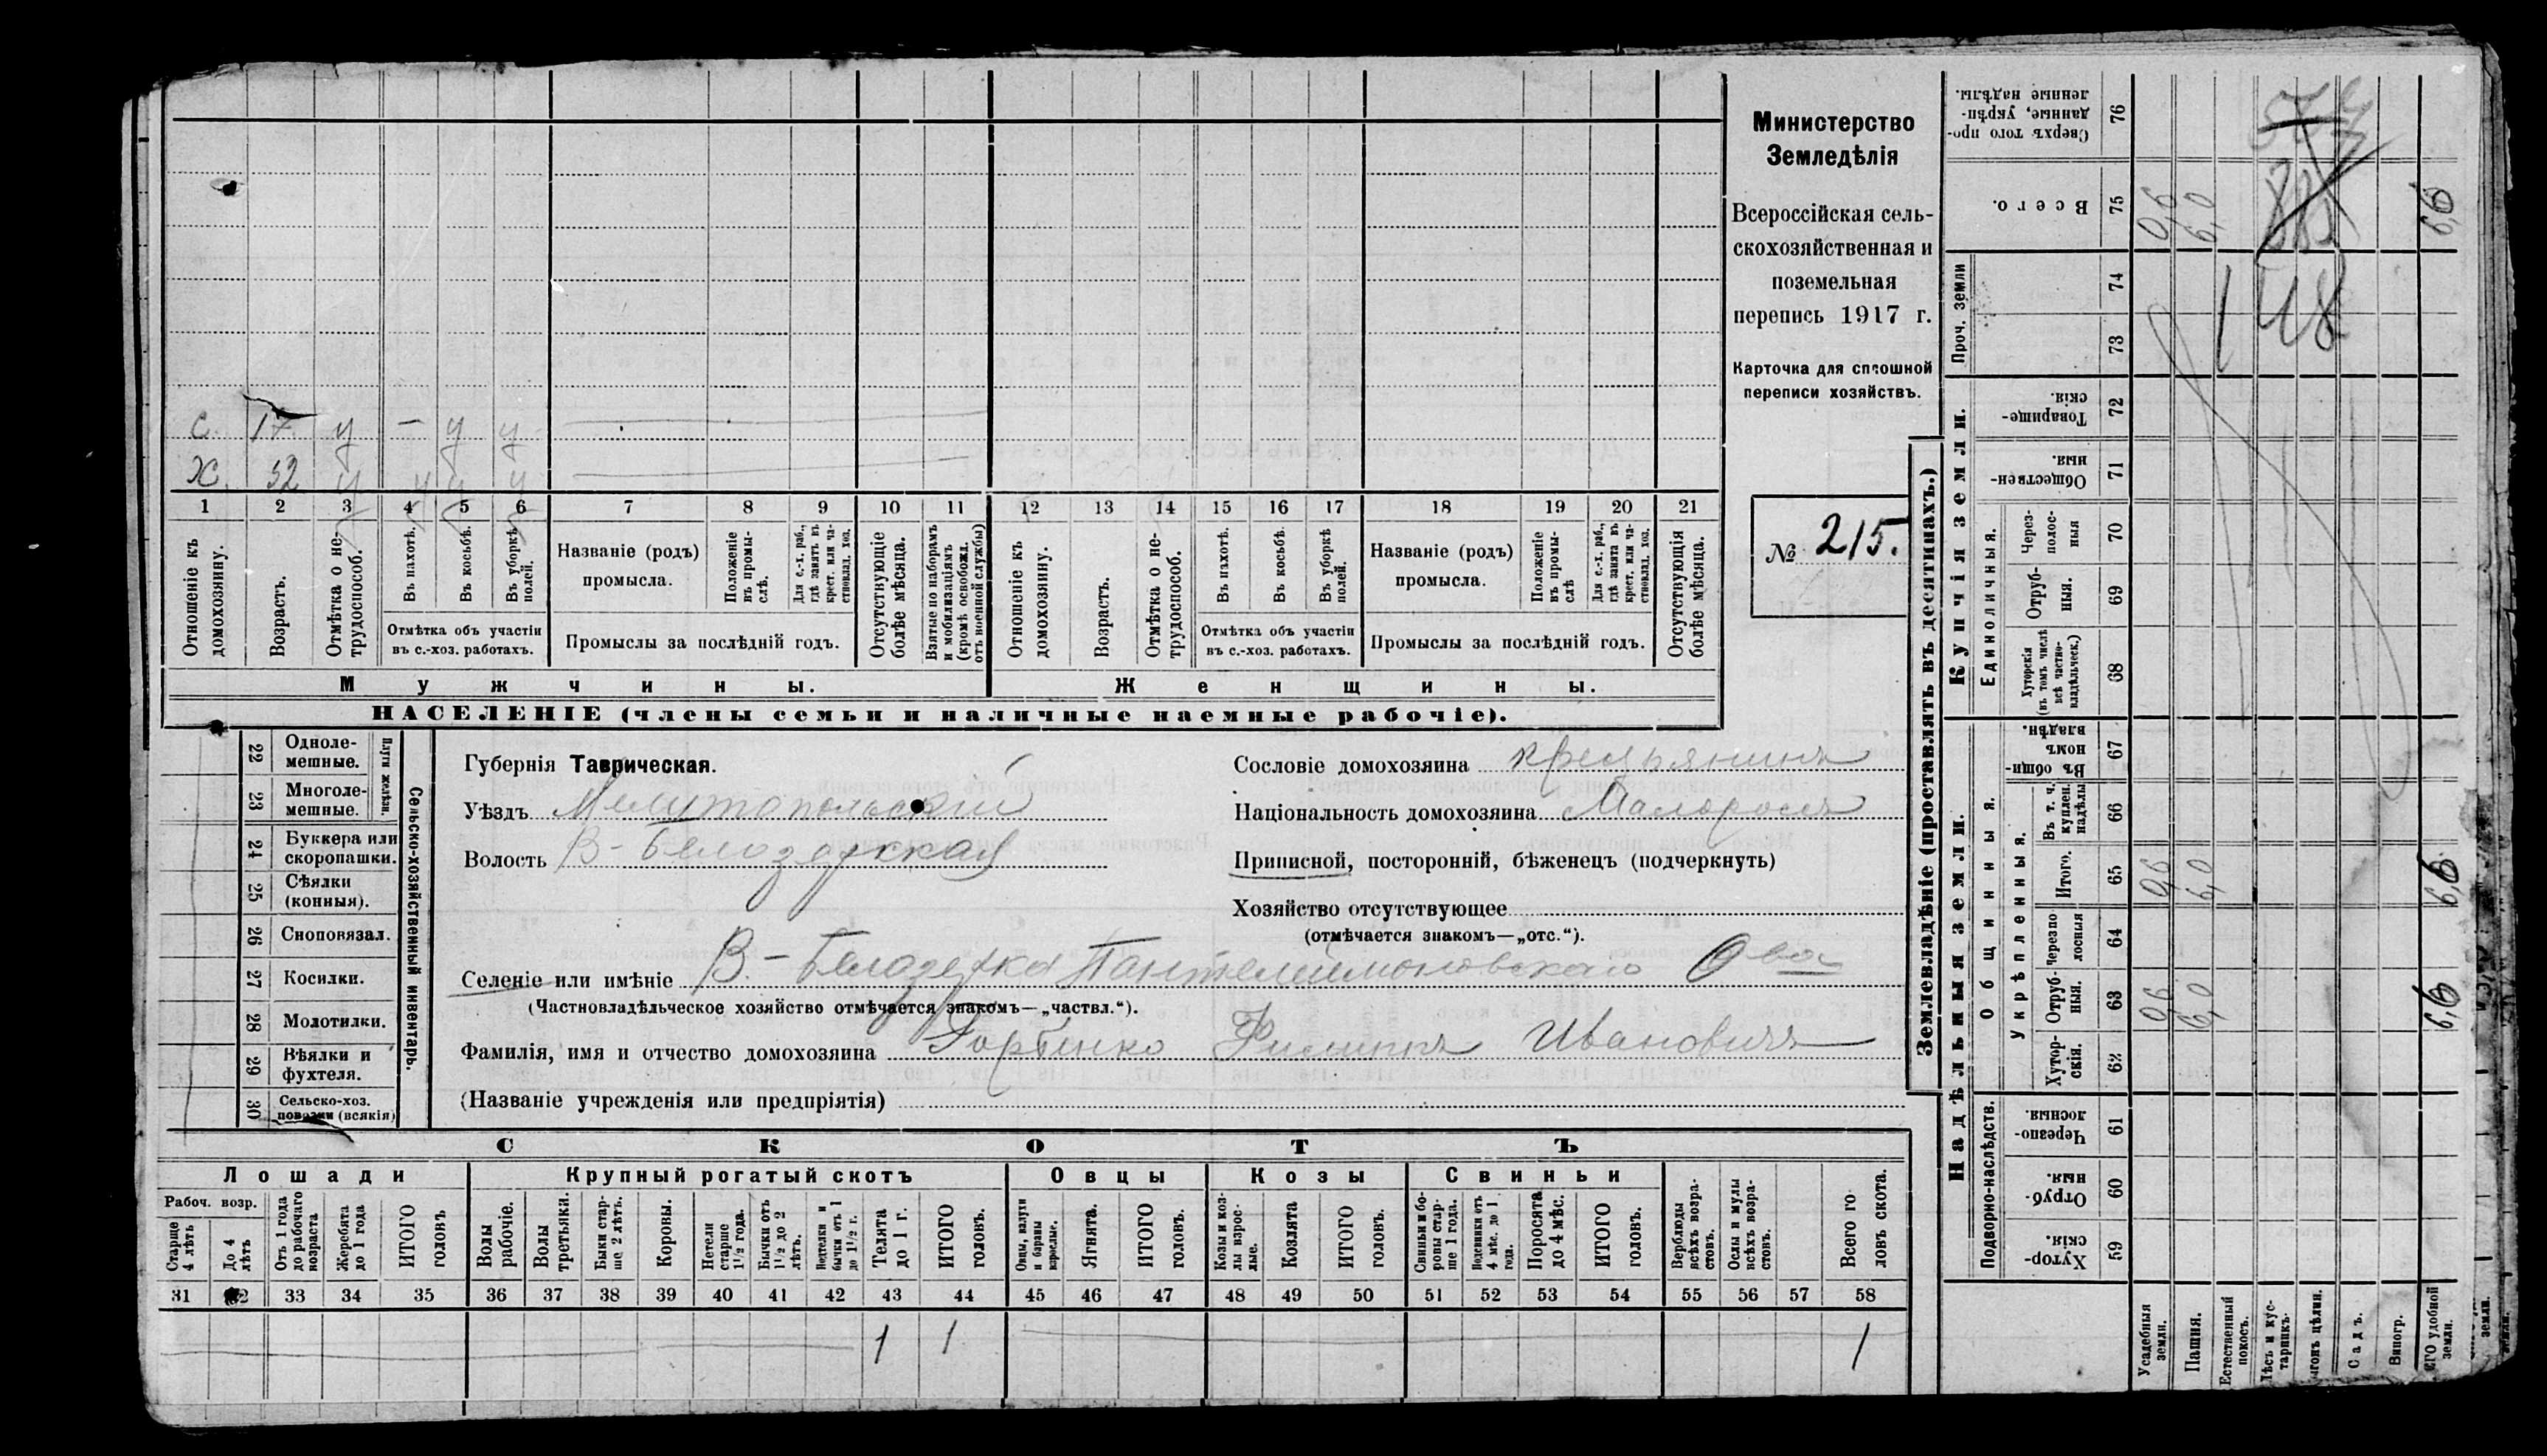 Министерство
Земледѣлія
Всероссійская сель-
скохозяйственная и
поземельная
перепись 1917 г.
Карточка для сплошной
переписи хозяйствъ.
№ 215.
С. 17 у – у у
Х. 52 у у у у
1 2 3 4 5 6 7 8 9 10 11 12 13 14 15 16 17 18 19 20 21
Отношеніе къ домохозяину.
Возрастъ.
Отмѣтка о не-трудоспособ.
Въ пахотѣ.
Въ косьбѣ.
Въ уборкѣ полей.
Отмѣтка объ участіи
въ с.-хоз. работахъ.
Названіе (родъ)
промысла.
Положеніе въ промы-слѣ.
Для с.-х. раб., гдѣ занятъ въ крест. или ча-стновлад. хоз.
Промыслы за послѣдній годъ.
Отсутствующіе болѣе мѣсяца.
Взятые по наборамъ и мобилизаціямъ (кромѣ освобожд. отъ военной службы)
Отношеніе къ домохозяину.
Возрастъ.
Отмѣтка о не-трудоспособ.
Въ пахотѣ.
Въ косьбѣ.
Въ уборкѣ полей.
Отмѣтка объ участіи
въ с.-хоз. работахъ.
Названіе (родъ)
промысла.
Положеніе въ промы-слѣ
Для с.-х. раб., гдѣ занята въ крест. или ча-стновлад. хоз.
Промыслы за послѣдній годъ.
Отсутствующія болѣе мѣсяца.
Мужчины.
Женщины.
НАСЕЛЕНІЕ (члены семьи и наличные наемные рабочіе).
Сельско-хозяйственный инвентарь.
Плуги желѣзн.
22 Одноле-мешные.
23 Многоле-мешные.
24 Буккера или скоропашки.
25 Сѣялки (конныя).
26 Сноповязал.
27 Косилки.
28 Молотилки.
29 Вѣялки и фухтеля.
30 Сельско-хоз. повозки (всякія)
Губернія Таврическая.
Уѣздъ Мелитопольский
Волость В-Белозерская
Сословіе домохозяина крестьянинъ
Національность домохозяина Малороссъ
Приписной, посторонній, бѣженецъ (подчеркнуть)
Хозяйство отсутствующее
(отмѣчается знакомъ—„отс.“).
Селеніе или имѣніе В.-Белозерка Пантелеимоновскаго О-ва
(Частновладѣльческое хозяйство отмѣчается знакомъ—„частвл.“).
Фамилія, имя и отчество домохозяина Горбенко Филиппъ Ивановичъ
(Названіе учрежденія или предпріятія)
СКОТЪ
Лошади
Крупный рогатый скотъ
Овцы
Козы
Свиньи
Рабоч. возр.
Старше 4 лѣтъ
До 4 лѣтъ
Отъ 1 года до рабочаго возраста
Жеребята до 1 года
ИТОГО головъ
Волы рабочіе.
Волы третьяки.
Быки стар-ше 2 лѣтъ.
Коровы.
Нетели старше 1½ года.
Бычки отъ 1½ до 2 лѣтъ.
Подтелки и бычки отъ 1 до 1½ г.
Телята до 1 г.
ИТОГО головъ.
Овцы, валухи и бараны взрослые.
Ягнята.
ИТОГО головъ.
Козы и коз-лы взрос-лые.
Козлята
ИТОГО головъ.
Свиньи и бо-ровы стар-ше 1 года.
Подсвинки отъ 4 мѣс. до 1 года.
Поросята до 4 мѣс.
ИТОГО головъ.
Верблюды всѣхъ возра-стовъ.
Ослы и мулы всѣхъ возра-стовъ.
Всего го-ловъ скота.
31 32 33 34 35 36 37 38 39 40 41 42 43 44 45 46 47 48 49 50 51 52 53 54 55 56 57 58
1 1 1
Землевладѣніе (проставлять въ десятинахъ.)
Надѣльныя земли.
Купчія земли.
Проч. земли
Подворно-наслѣдств.
Общинныя.
Укрѣпленныя.
Единоличныя.
76 Сверхъ того про-данные, укрѣп-ленные надѣлы.
75 Всего. 0,6 6,0 6,6
74
73
72 Товарище-скія.
71 Обществен-ныя.
70 Через-полос-ныя
69 Отруб-ныя.
68 Хуторскія (въ томъ числѣ всѣ частно-владѣльческ.)
67 Въ общин-номъ владѣн.
66 Въ т. ч. куплен. надѣлы
65 Итого. 0,6 6,0 6,6
64 Черезпо-лосныя
63 Отруб-ныя. 0,6 6,0 6,6
62 Хутор-скія.
61 Черезпо-лосныя.
60 Отруб-ныя.
59 Хутор-скія.
148
Усадебныя земли.
Пашня.
Естественный покосъ.
Лѣсъ и кус-тарникъ.
Садъ.
Виногр.
ЕГО удобной земли.